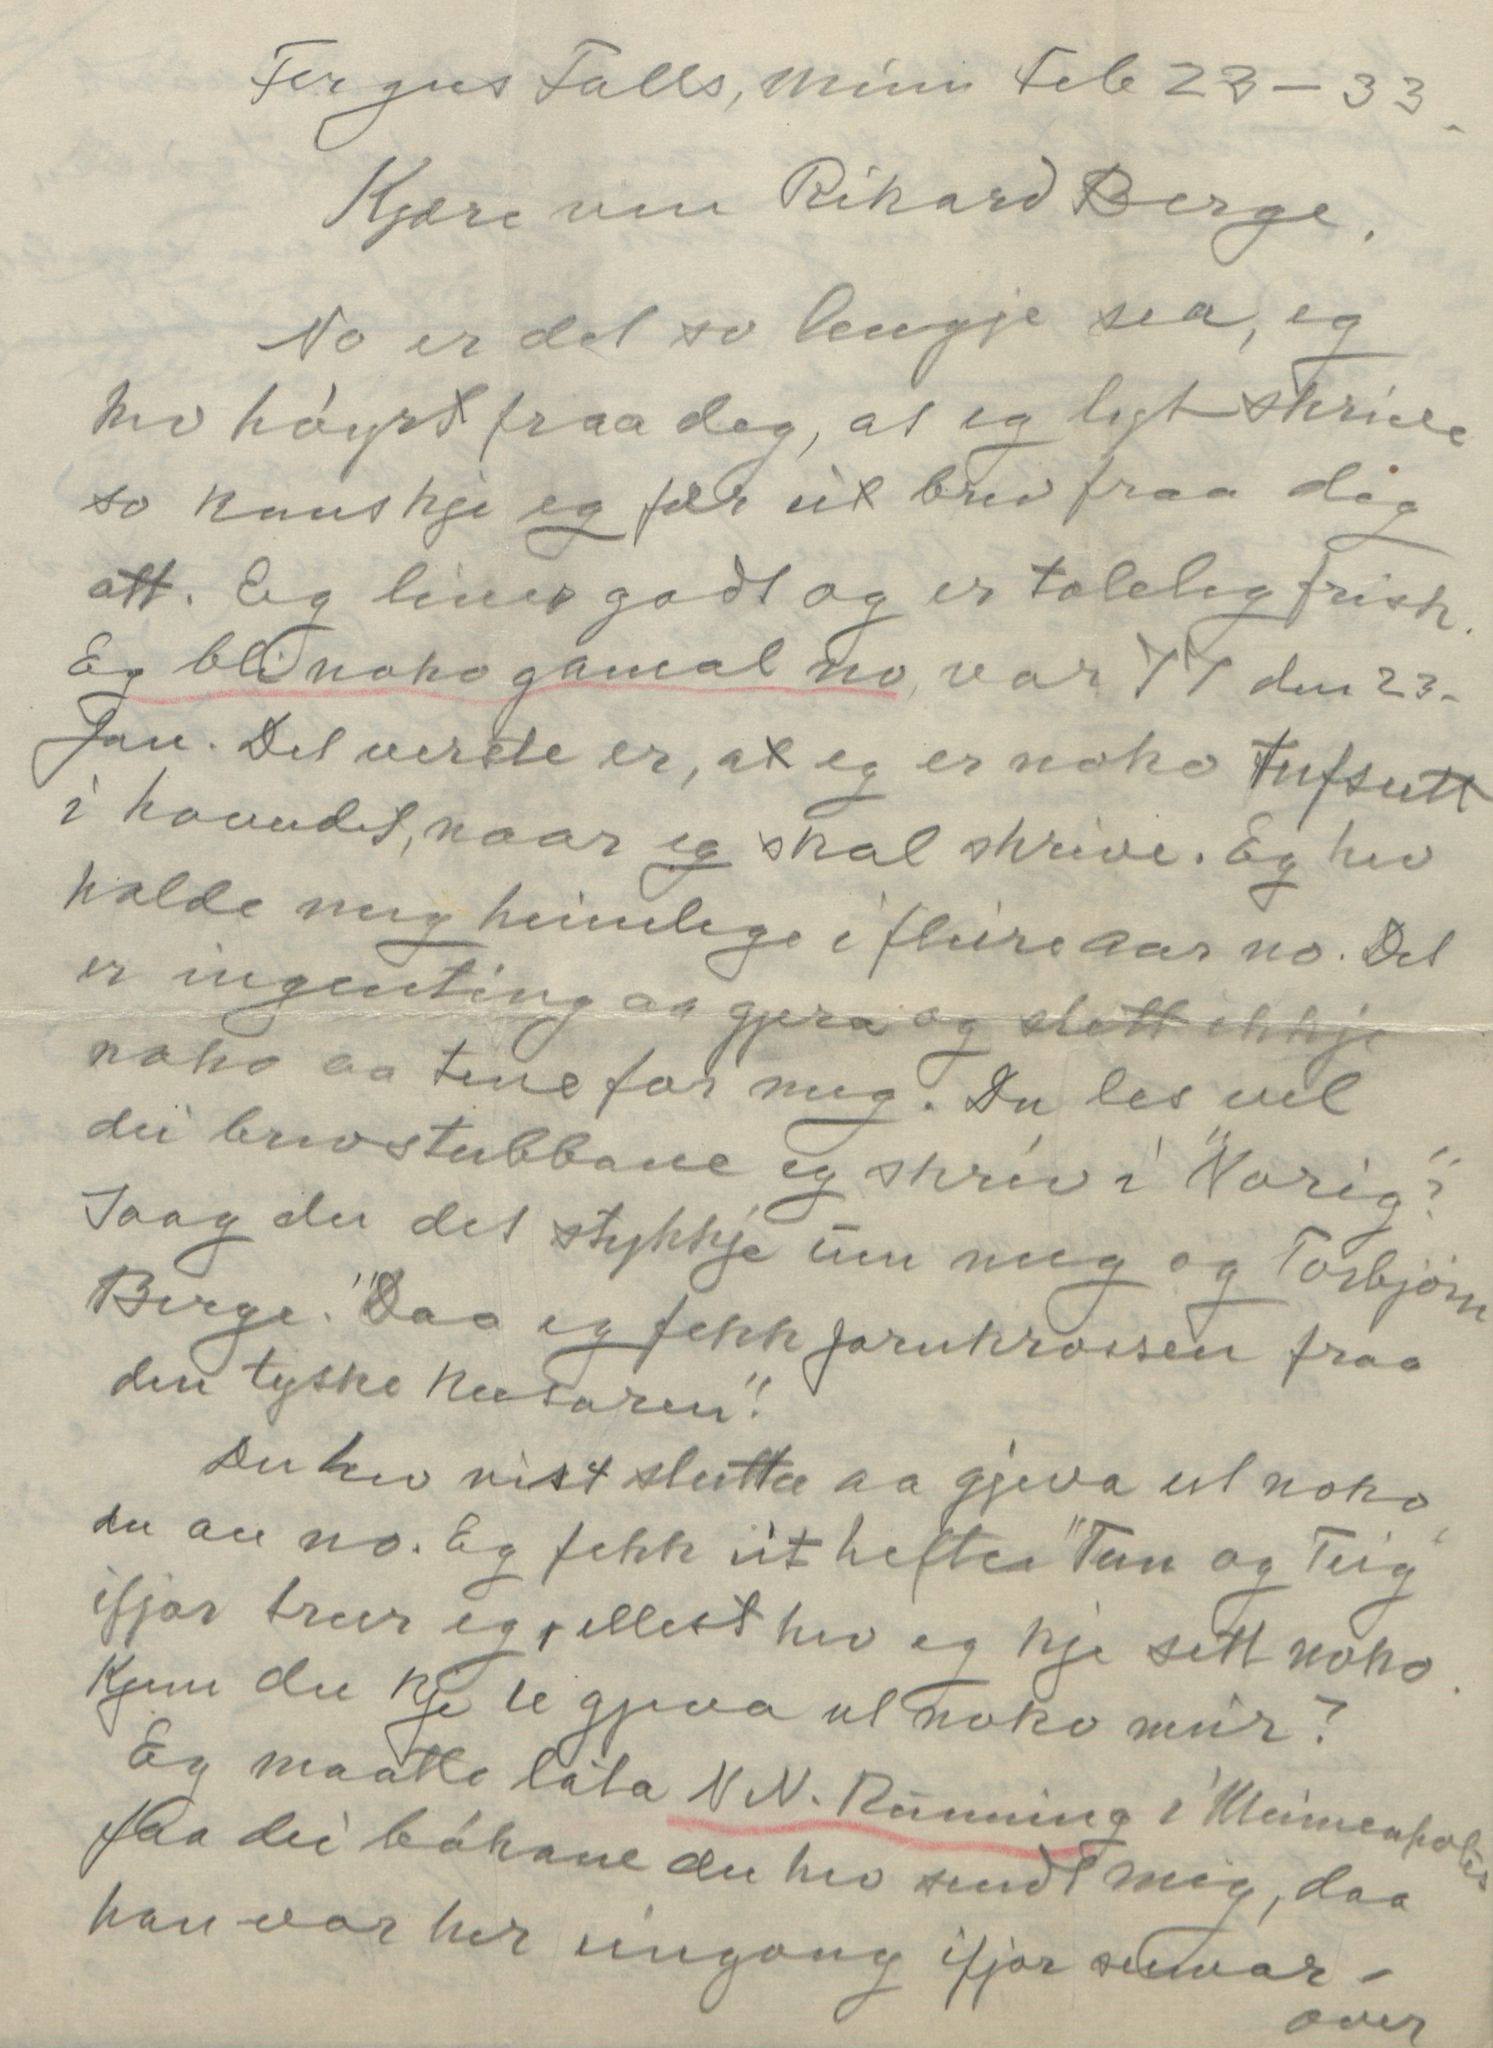 Fergus Falls, Minn Feb 23 – 33.
Kjære ven Rikard Berge.
No er det so lengje sea, eg
hev höyrt fraa deg, at eg lyt skrive
so kanskje eg fær eit brev fraa dig
att. Eg liver godt og er toleleg frisk.
Eg bli noko gamal no, var 77 den 23-
Jan. Det verste er, at eg er noko tufsutt
i hovudet, naar eg skal skrive. Eg hev
halde meg heimlege i fleire aar no. Det
er ingenting aa gjera og slett ikkje
noko aa tene for meg. Du les vel
dei brevstubbane eg skriv i "Norig"?
Saag du det stykkje um meg og Torbjörn
Berge. "Daa eg fekk Jarnkrossen fraa
den tyske keisaren".
Du hev vist slutta aa gjeva ut noko,
du au no. Eg fekk eit hefte "Tun og Teig"
ifjor trur eg, ellest hev eg kje sett noko.
Kjem du kje te gjeva ut noko meir?
Eg maatte láta N N. Rönning i Minneapolis
faa dei bökane du hev sendt meig, daa
han var her eingong ifjor sumar –
over